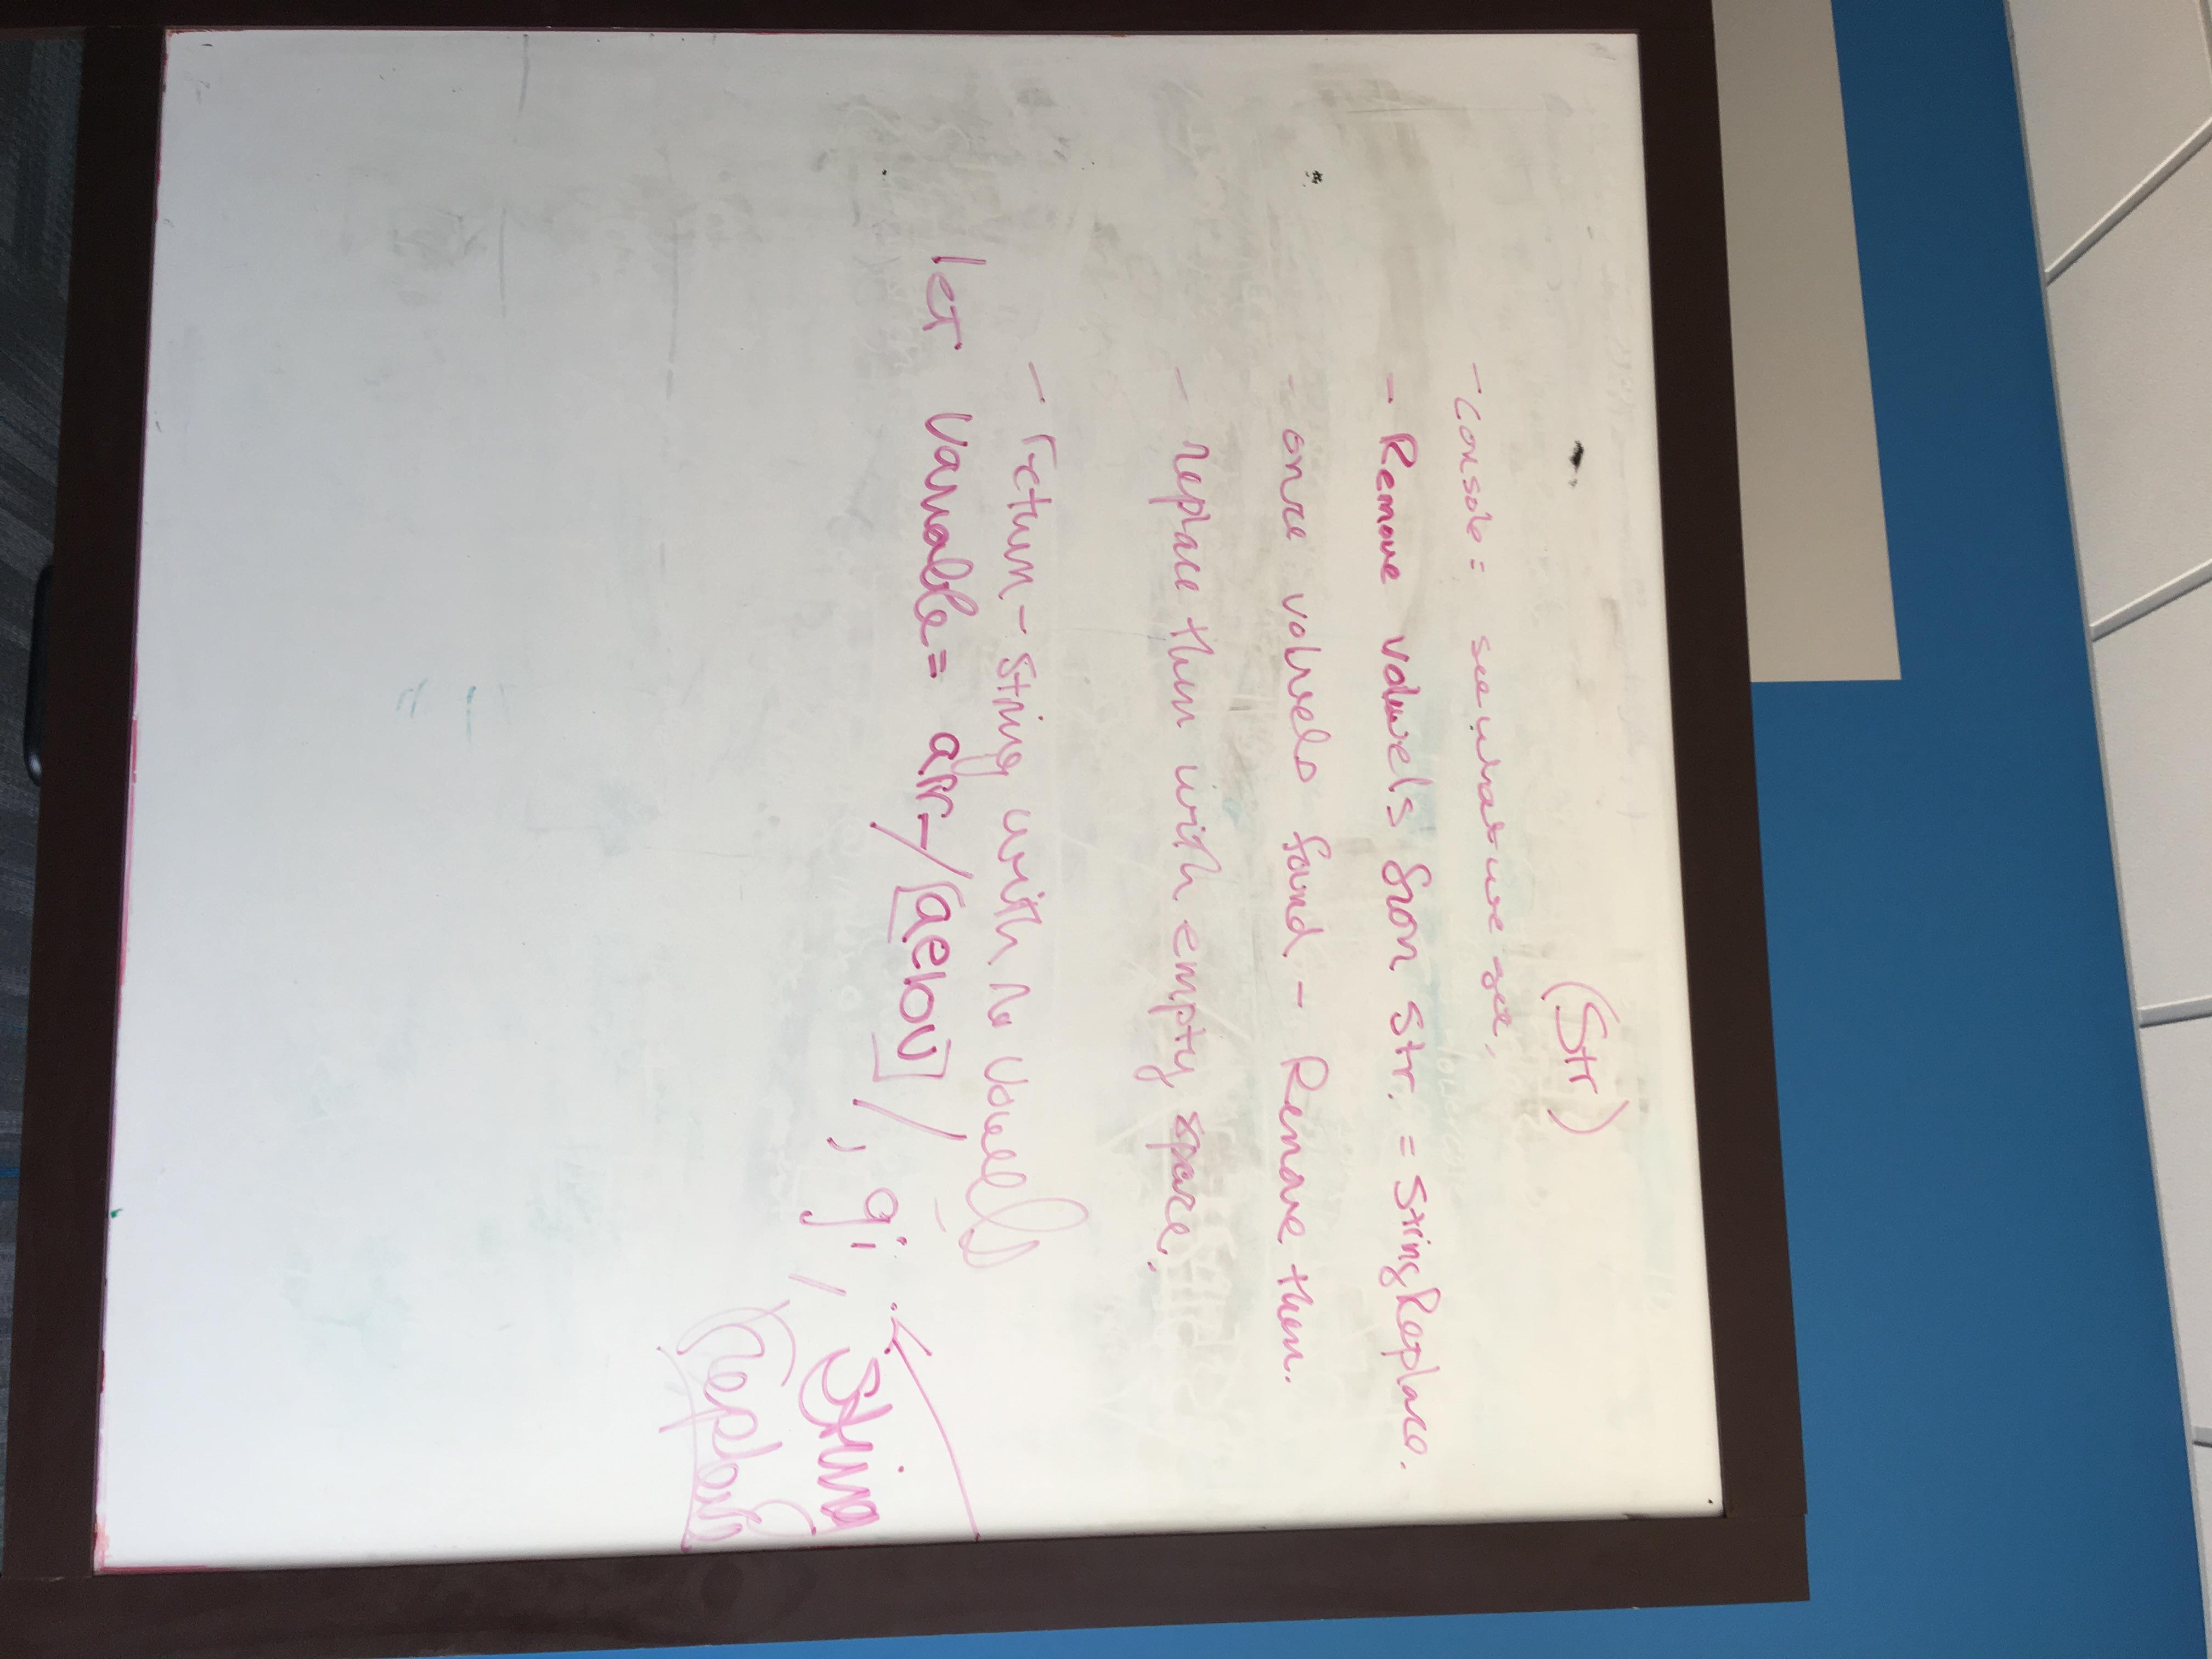 (Str)
- Console = see what we get.
- Remove vowels from str. = string Replace.
- once volwels found - Remove them.
- replace them with empty space.
- return - string with no vowels
let variable = arr - /[aeiou]/, gi,
String
Replace